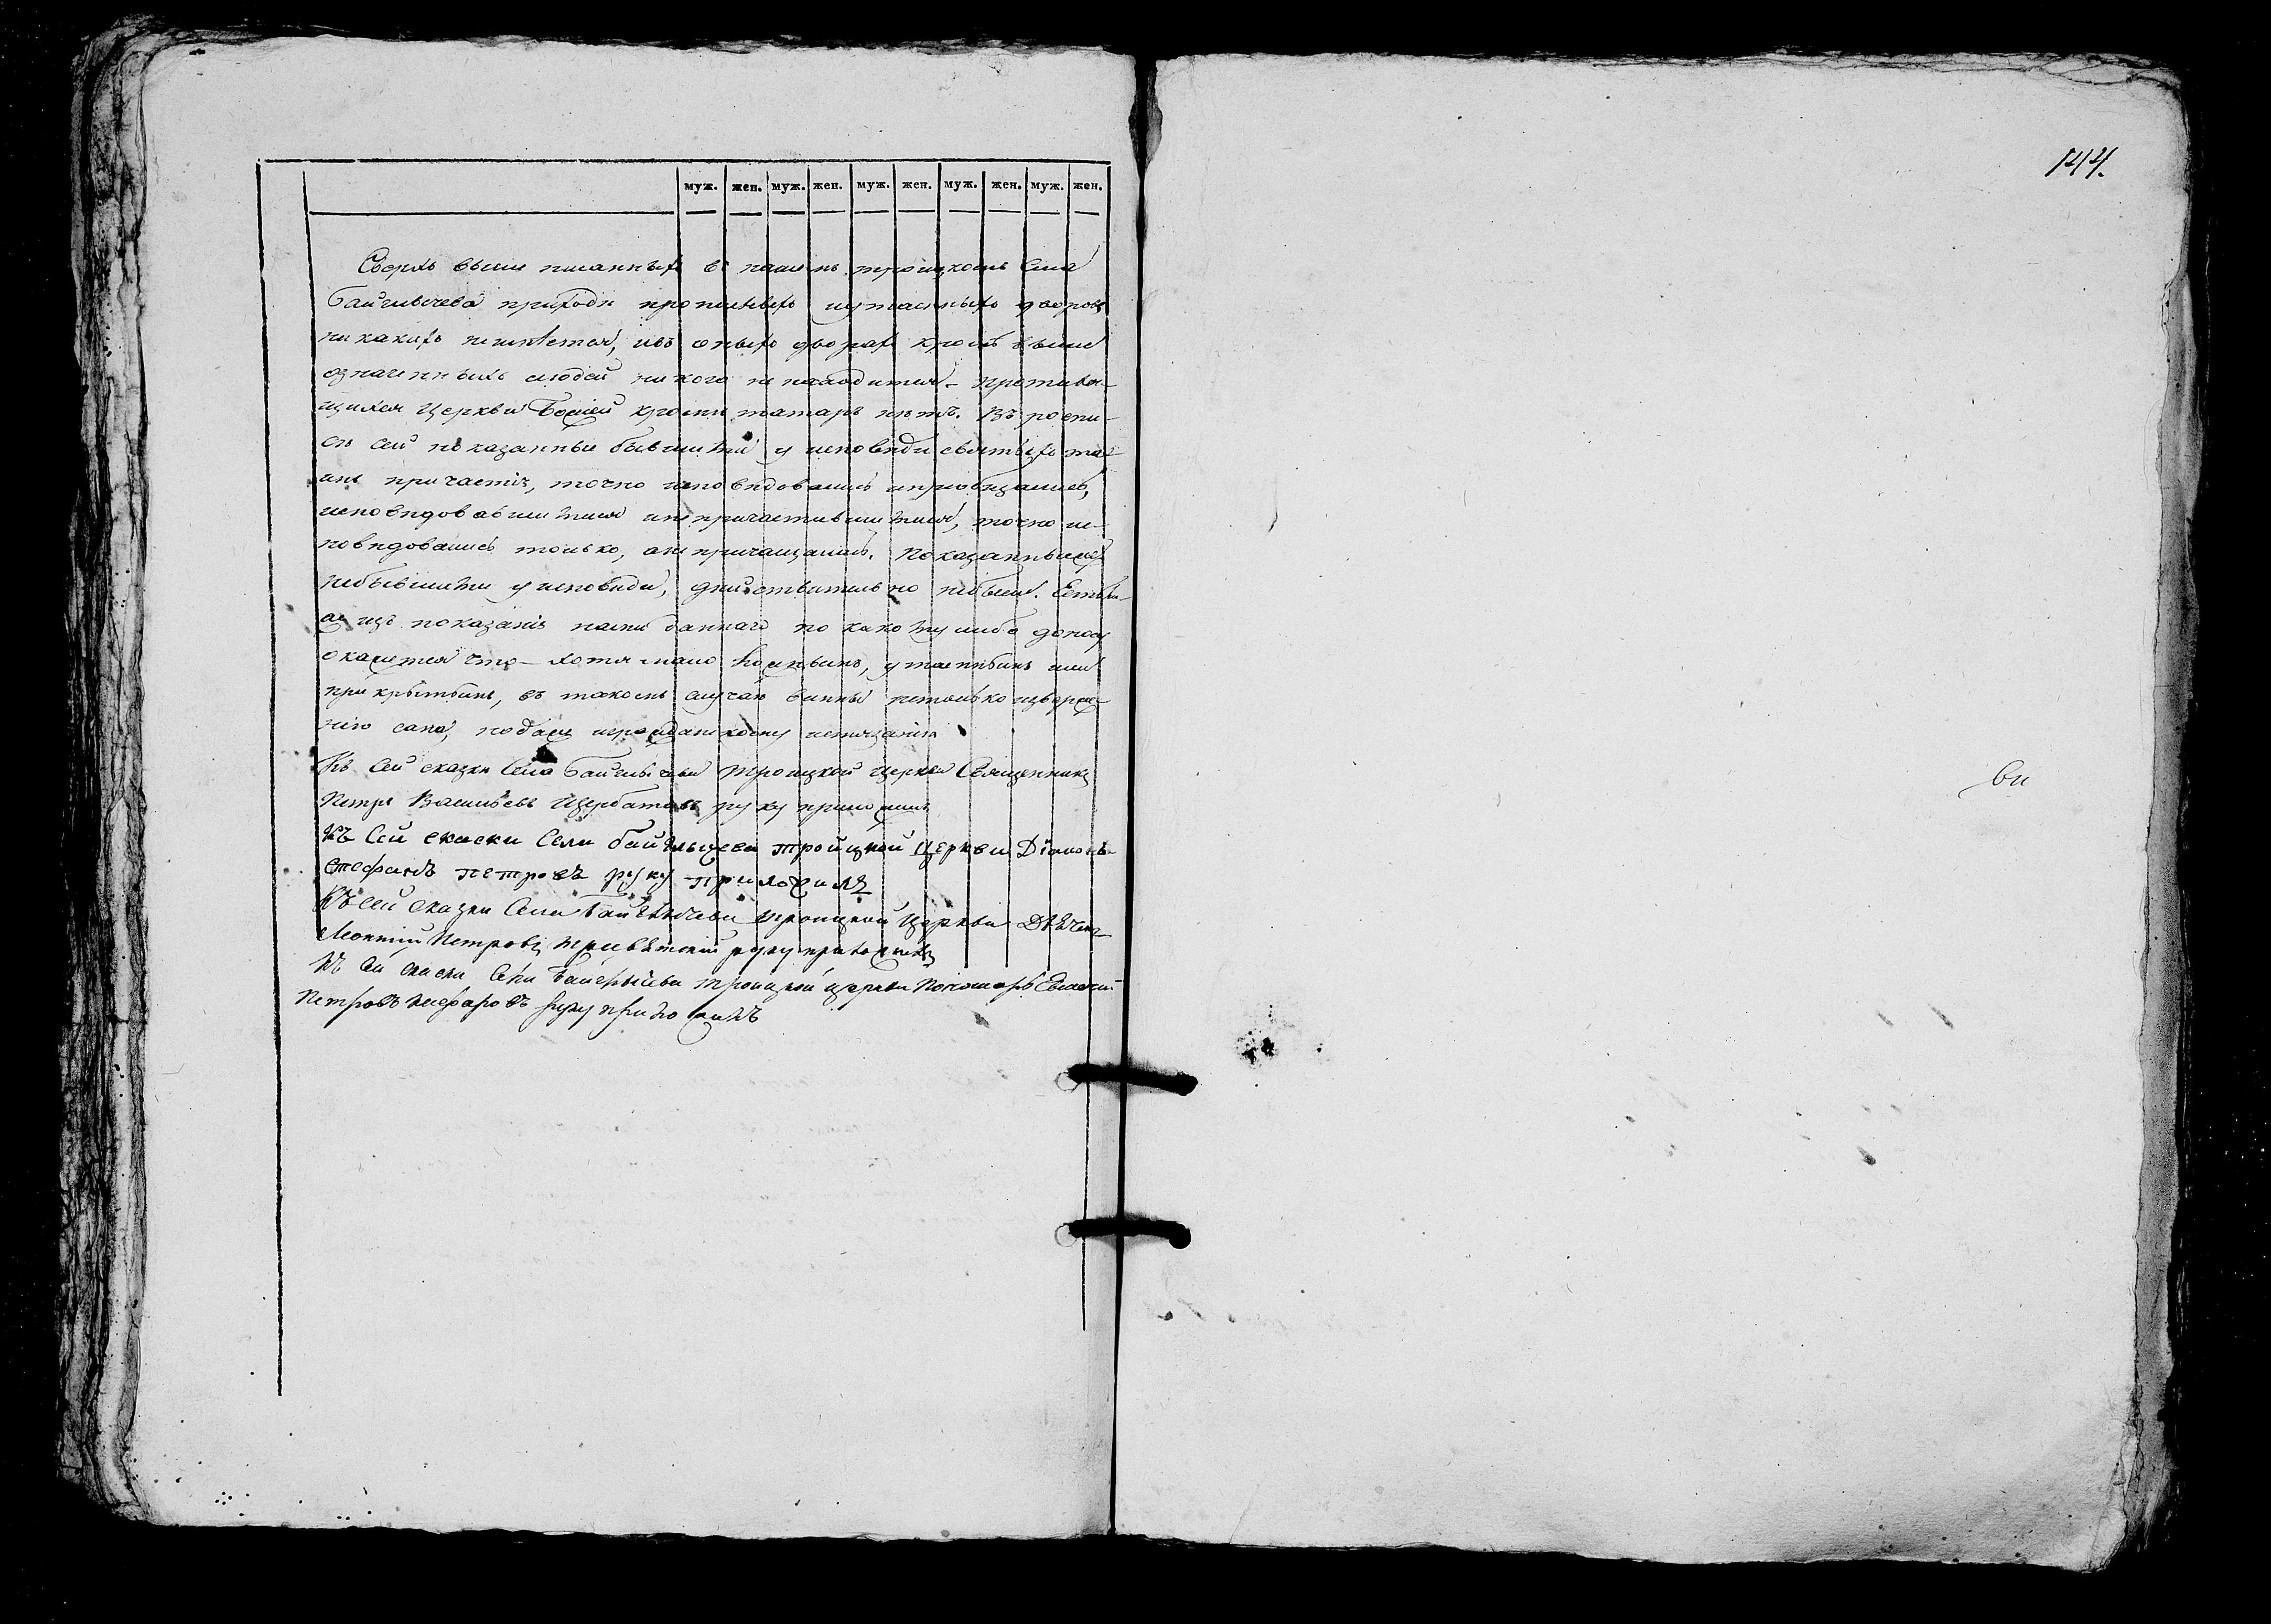 144.
муж. жен. муж. жен. муж. жен. муж. жен. муж. жен.
Сверхъ выше писанныхъ въ нашемъ троицкомъ села
Байглычева приходѣ прописныхъ иутаенныхъ дворовъ
никакихъ неимѣется, ивъ оныхъ дворахъ кромѣ выше
означенныхъ людей никого ненаходится. Противя-
щихся Церкви Божіей кромѣ татаръ нѣтъ. Въ роспи-
си сей показанные бывшими у исповѣди исвятыхъ та-
инъ причастія, точно исповѣдовались иприобщались,
исповѣдовавшимися инепричастившимися, точно ис-
повѣдовались только, анепричащались. Показанныежъ
небывшими уисповѣди, дѣйствительно небыли. Естьли-
жъ изъ показанія нами даннаго по какому либо доносу
окажется что-хотя мало ложнымъ, утаеннымъ или
прикрытымъ, въ такомъ случаѣ винны нетолько извержѣ-
нію сана, нодаже игражданскому истязанію
Къ сей сказкѣ села Байглычева Троицкой Церкви Священникъ
Петръ Васильевъ Щербатовъ руку приложилъ
Къ Сей скаски Села байглычева тройцкой Церкви Діаконъ
стефанъ петровъ руку приложилъ
Къ сей сказки Села Байглычева троицкой Церкви Дьячекъ
Леонтій Петровъ руку приложилъ
Къ сей скаски Села Байглычева троицкой церкви Пономарь
Петровъ руку приложилъ